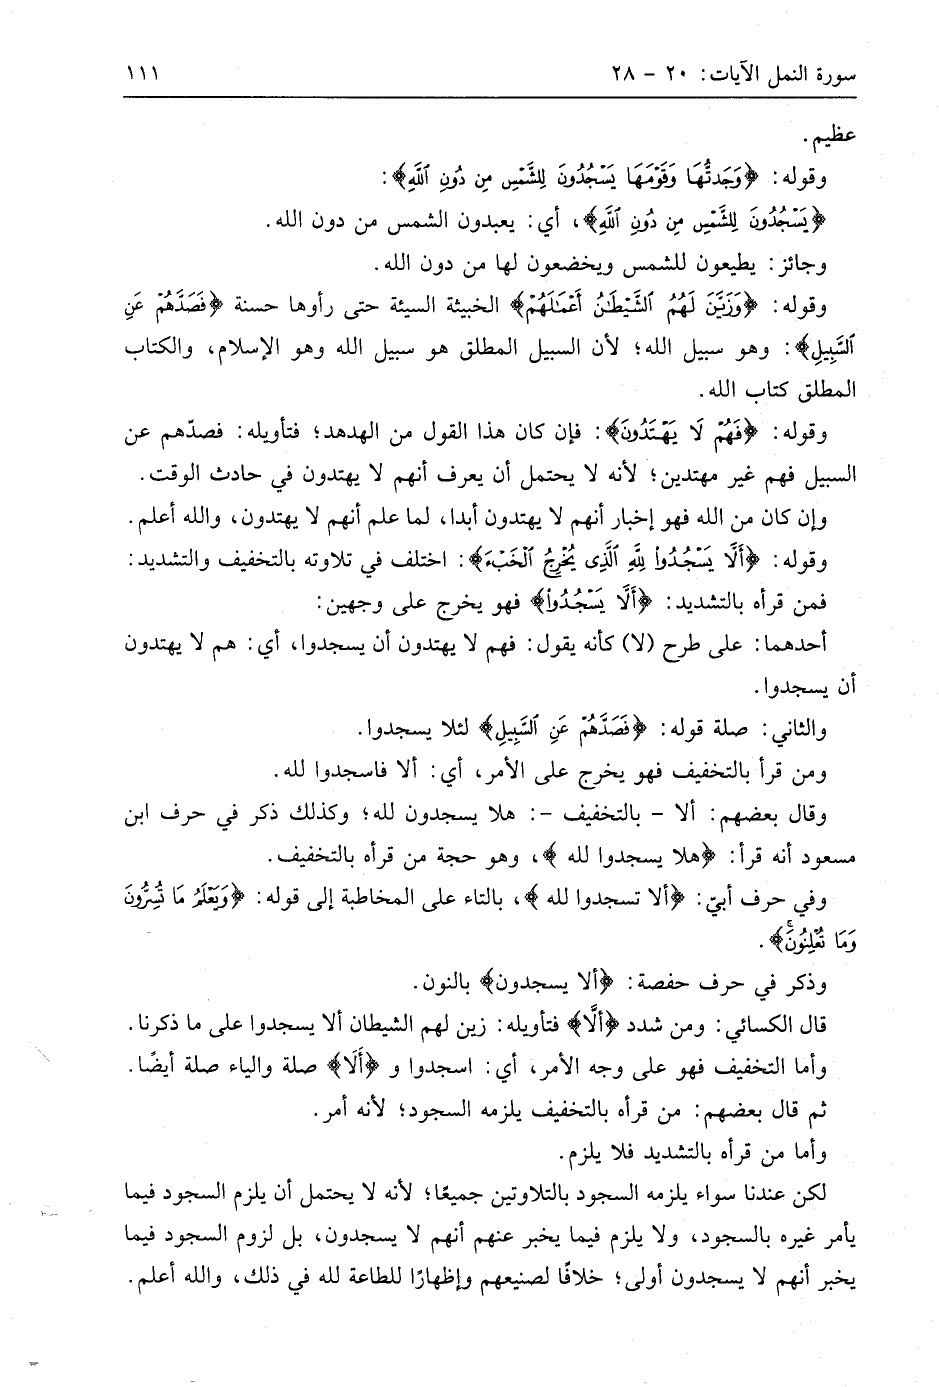 سورة النمل الآيات: ٢٠ - ٢٨ ١١١
عظيم.
وقوله: ﴿وَجَدتُّهَا وَقَوْمَهَا يَسْجُدُونَ لِلشَّمْسِ مِن دُونِ ٱللَّهِ﴾:
﴿يَسْجُدُونَ لِلشَّمْسِ مِن دُونِ ٱللَّهِ﴾، أي: يعبدون الشمس من دون الله.
وجائز: يطيعون للشمس ويخضعون لها من دون الله.
وقوله: ﴿وَزَيَّنَ لَهُمُ ٱلشَّيْطَٰنُ أَعْمَٰلَهُمْ﴾ الخبيثة السيئة حتى رأوها حسنة ﴿فَصَدَّهُمْ عَنِ
ٱلسَّبِيلِ﴾: وهو سبيل الله؛ لأن السبيل المطلق هو سبيل الله وهو الإسلام، والكتاب
المطلق كتاب الله.
وقوله: ﴿فَهُمْ لَا يَهْتَدُونَ﴾: فإن كان هذا القول من الهدهد؛ فتأويله: فصدّهم عن
السبيل فهم غير مهتدين؛ لأنه لا يحتمل أن يعرف أنهم لا يهتدون في حادث الوقت.
وإن كان من الله فهو إخبار أنهم لا يهتدون أبدا، لما علم أنهم لا يهتدون، والله أعلم.
وقوله: ﴿أَلَّا يَسْجُدُوا۟ لِلَّهِ ٱلَّذِى يُخْرِجُ ٱلْخَبْءَ﴾: اختلف في تلاوته بالتخفيف والتشديد:
فمن قرأه بالتشديد: ﴿أَلَّا يَسْجُدُوا۟﴾ فهو يخرج على وجهين:
أحدهما: على طرح (لا) كأنه يقول: فهم لا يهتدون أن يسجدوا، أي: هم لا يهتدون
أن يسجدوا.
والثاني: صلة قوله: ﴿فَصَدَّهُمْ عَنِ ٱلسَّبِيلِ﴾ لئلا يسجدوا.
ومن قرأ بالتخفيف فهو يخرج على الأمر، أي: ألا فاسجدوا لله.
وقال بعضهم: ألا - بالتخفيف -: هلا يسجدون لله؛ وكذلك ذكر في حرف ابن
مسعود أنه قرأ: ﴿هلا يسجدوا لله ﴾، وهو حجة من قرأه بالتخفيف.
وفي حرف أبيّ: ﴿ألا تسجدوا لله ﴾، بالتاء على المخاطبة إلى قوله: ﴿وَيَعْلَمُ مَا تُسِرُّونَ
وَمَا تُعْلِنُونَۚ﴾.
وذكر في حرف حفصة: ﴿ألا يسجدون﴾ بالنون.
قال الكسائي: ومن شدد ﴿ألَّا﴾ فتأويله: زين لهم الشيطان ألا يسجدوا على ما ذكرنا.
وأما التخفيف فهو على وجه الأمر، أي: اسجدوا و ﴿أَلَا﴾ صلة والياء صلة أيضًا.
ثم قال بعضهم: من قرأه بالتخفيف يلزمه السجود؛ لأنه أمر.
وأما من قرأه بالتشديد فلا يلزم.
لكن عندنا سواء يلزمه السجود بالتلاوتين جميعًا؛ لأنه لا يحتمل أن يلزم السجود فيما
يأمر غيره بالسجود، ولا يلزم فيما يخبر عنهم أنهم لا يسجدون، بل لزوم السجود فيما
يخبر أنهم لا يسجدون أولى؛ خلافًا لصنيعهم وإظهارًا للطاعة لله في ذلك، والله أعلم.